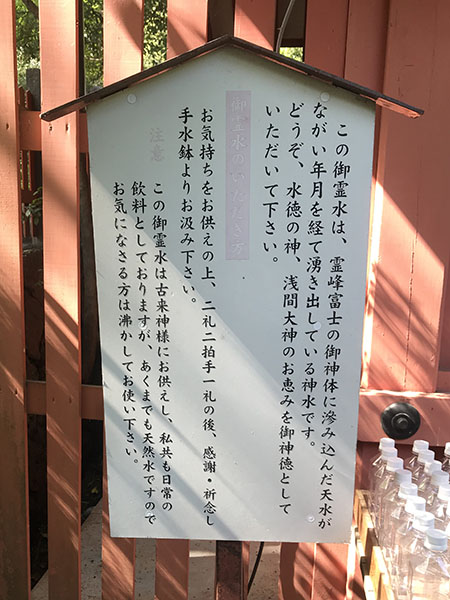 この御霊水は、霊峰富士の御神体に滲み込んだ天水が
ながい年月を経て湧き出している神水です。
どうぞ、水徳の神、浅間大神のお恵みを御神徳として
いただいて下さい。
御霊水のいただき方
お気持ちをお供えの上、二礼二拍手一礼の後、感謝・祈念し
手水鉢よりお汲み下さい。
注意
この御霊水は古来神様にお供えし、私共も日常の
飲料としておりますが、あくまでも天然水ですので
お気になさる方は沸かしてお使い下さい。